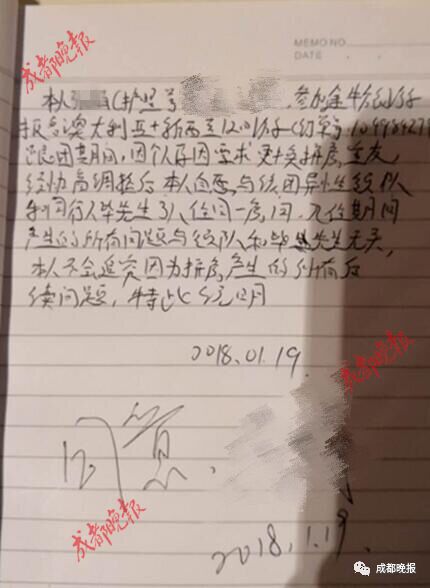 成都晚报
MEMO NO.
DATE
本人张 (护照号 参加金牛假期
报名澳大利亚+新西兰12日游 (订单号:
跟团期间,因个人原因要求更换拼房室友,
经协商调整后本人自愿与该团异性领队
和同行人毕先生 入住同一房间,入住期间
产生的所有问题与领队和毕先生无关,
本人不会追究因为拼房产生的所有后
续问题,特此说明
2018.01.19.
成都晚报
同意.
成都晚报
2018.1.19.
成都晚报